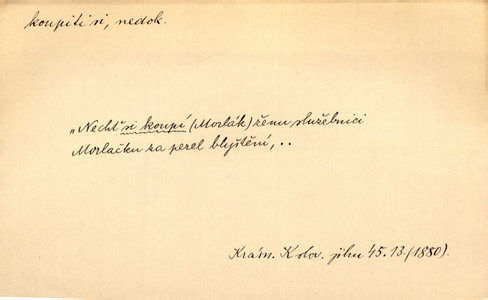 koupiti si, nedok.
„Nechť si koupí (Morlák) ženu, služebnici
Morlačku za perel blyštění, ..
Krásn. K slov. jihu 45. 13. (1880).